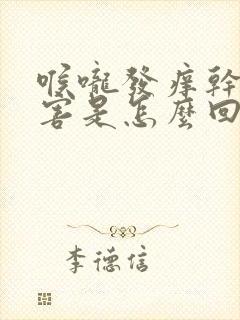 喉嚨發痒幹
害是怎麼回
李德信